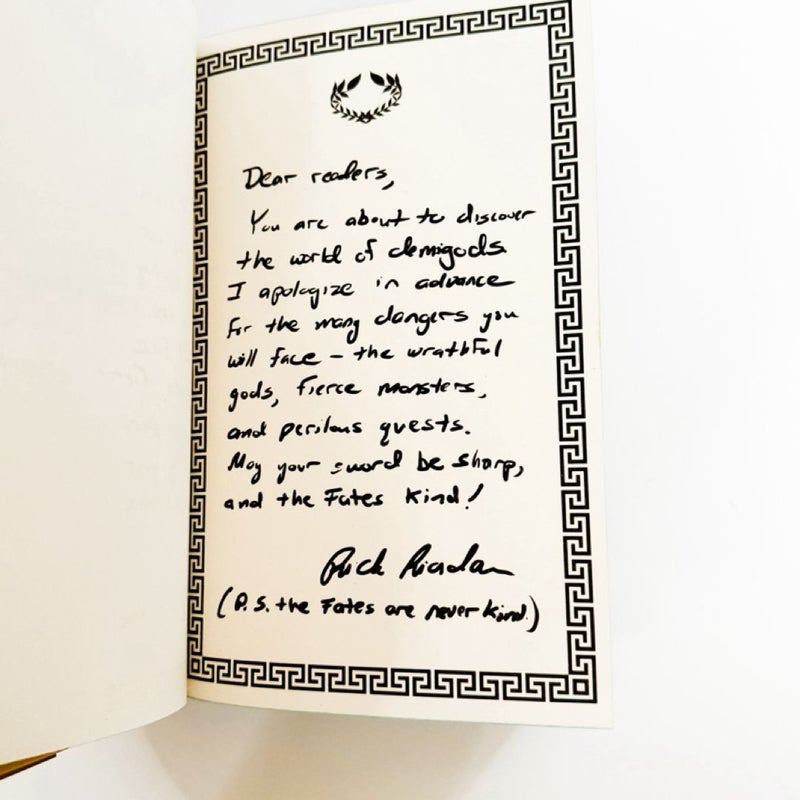 Dear readers,
You are about to discover
the world of demigods
I apologize in advance
for the many dangers you
will face – the wrathful
gods, fierce monsters,
and perilous quests.
May your sword be sharp,
and the Fates kind!
Rick Riordan
(P.S. the Fates are never kind.)